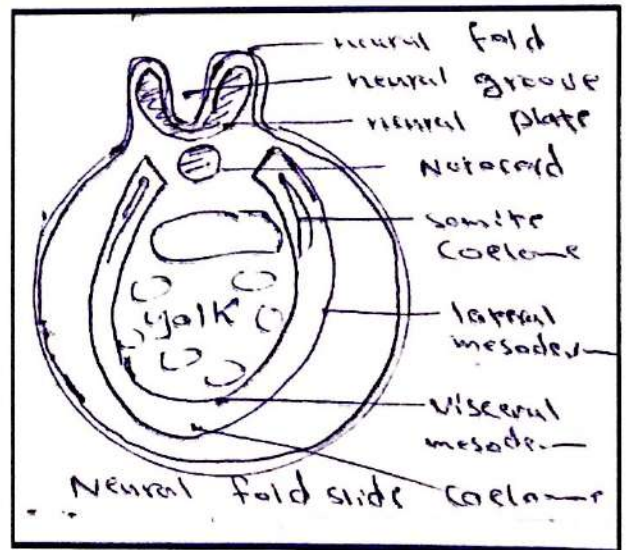 neural fold
neural groove
neural plate
Notocord
somite
Coelome
lateral
mesoder
yolk
visceral
mesode
Neural fold slide
coelome